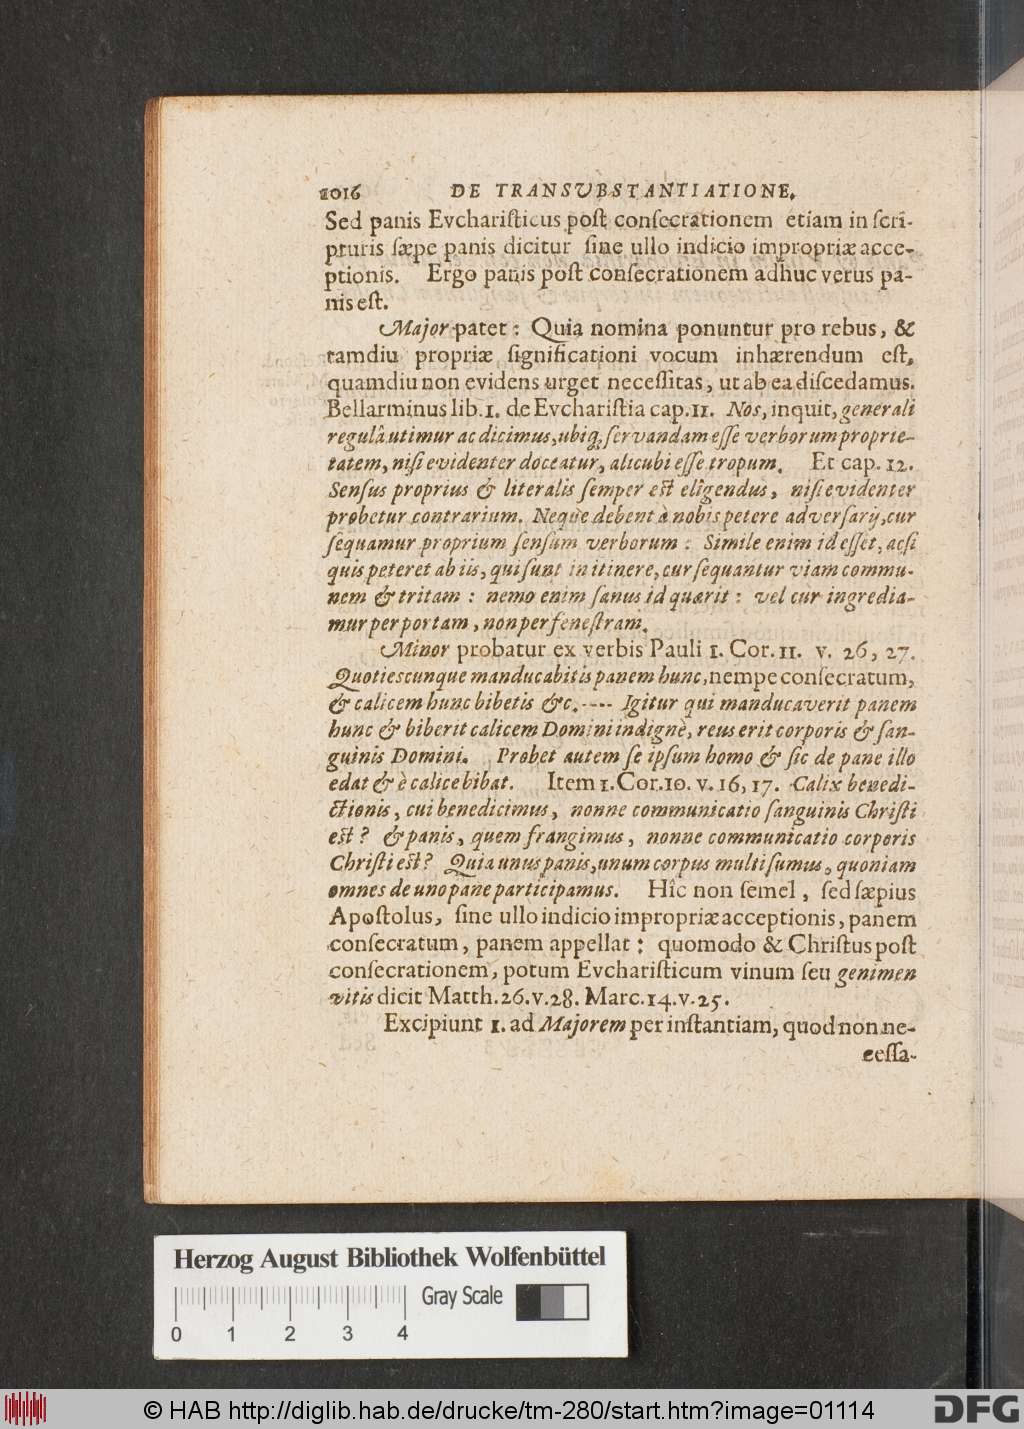 1016 DE TRANSVBSTANTIATIONE.
Sed panis Evcharisticus post consecrationem etiam in scri-
pturis sæpe panis dicitur sine ullo indicio impropriæ acce-
ptionis. Ergo panis post consecrationem adhuc verus pa-
nis est.
Major patet: Quia nomina ponuntur pro rebus, &
tamdiu propriæ significationi vocum inhærendum est,
quamdiu non evidens urget necessitas, ut ab ea discedamus.
Bellarminus lib. 1. de Evcharistia cap. 11. Nos, inquit, generali
regulâ utimur ac dicimus, ubiq; servandam esse verborum proprie-
tatem, nisi evidenter doceatur, alicubi esse tropum. Et cap. 12.
Sensus proprius & literalis semper est eligendus, nisi evidenter
probetur contrarium. Neque debent à nobis petere adversarij, cur
sequamur proprium sensum verborum: Simile enim id esset, ac si
quis peteret ab iis, qui sunt in itinere, cur sequantur viam commu-
nem & tritam: nemo enim sanus id quærit: vel cur ingredia-
mur per portam, non per fenestram.
Minor probatur ex verbis Pauli 1. Cor. 11. v. 26, 27.
Quotiescunque manducabitis panem hunc, nempe consecratum,
& calicem hunc bibetis &c. ---- Igitur qui manducaverit panem
hunc & biberit calicem Domini indignè, reus erit corporis & san-
guinis Domini. Probet autem se ipsum homo & sic de pane illo
edat & è calice bibat. Item 1. Cor. 10. v. 16, 17. Calix benedi-
ctionis, cui benedicimus, nonne communicatio sanguinis Christi
est? & panis, quem frangimus, nonne communicatio corporis
Christi est? Quia unus panis, unum corpus multi sumus, quoniam
omnes de uno pane participamus. Hîc non semel, sed sæpius
Apostolus, sine ullo indicio impropriæ acceptionis, panem
consecratum, panem appellat: quomodo & Christus post
consecrationem, potum Evcharisticum vinum seu genimen
vitis dicit Matth. 26. v. 28. Marc. 14. v. 25.
Excipiunt 1. ad Majorem per instantiam, quod non ne-
cessa-
Herzog August Bibliothek Wolfenbüttel
Gray Scale
0 1 2 3 4
© HAB http://diglib.hab.de/drucke/tm-280/start.htm?image=01114
DFG